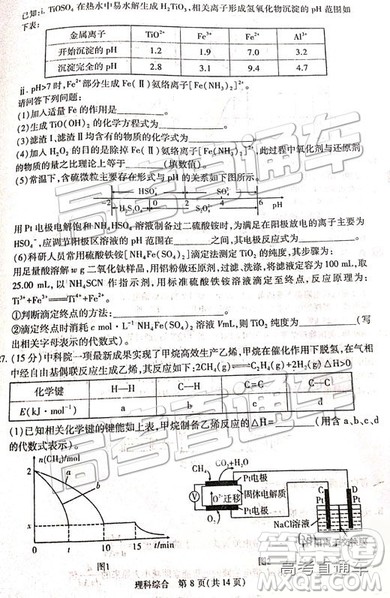 已知:i. TiOSO₄ 在热水中易水解生成 H₂TiO₃,相关离子形成氢氧化物沉淀的 pH 范围如
下表:
金属离子 TiO²⁺ Fe²⁺ Fe³⁺ Al³⁺
开始沉淀的 pH 1.2 1.9 7.0 3.2
沉淀完全的 pH 2.8 3.1 9.4 4.7
ii. pH>7 时,Fe²⁺ 部分生成 Fe(Ⅱ)氨络离子[Fe(NH₃)₂]²⁺.
请回答下列问题:
(1)加入适量 Fe 的作用是
(2)生成 TiO(OH)₂ 的化学方程式为
(3)滤渣Ⅰ,滤渣Ⅱ均含有的物质的化学式为
(4)加入 H₂O₂ 的目的是除掉 Fe(Ⅱ)氨络离子[Fe(NH₃)₂]²⁺,此过程中氧化剂与还原剂
的物质的量之比理论上等于 (填数值).
(5)常温下,含硫微粒主要存在形式与 pH 的关系如下图所示.
HSO₄⁻ SO₄²⁻
-2 0 2 4 6 pH
H₂S₂O₈ S₂O₈²⁻
用 Pt 电极电解饱和 NH₄HSO₄ 溶液制备过二硫酸铵时,为满足在阳极放电的离子主要为
HSO₄⁻,应调节阳极区溶液的 pH 范围在 之间,其阳极反应方程式为
(6)科研人员常用硫酸铁铵[NH₄Fe(SO₄)₂]滴定法测定 TiO₂ 的纯度,其步骤为:
用足量酸溶解 w g 二氧化钛样品,用铝粉做还原剂,过滤、洗涤,将滤液定容为 100 mL,取
25.00 mL,以 NH₄SCN 作指示剂,用标准硫酸铁铵溶液滴定至终点,反应原理为:
Ti³⁺+Fe³⁺═Ti⁴⁺+Fe²⁺.
①判断滴定终点的方法:
②滴定终点时消耗 c mol·L⁻¹ NH₄Fe(SO₄)₂ 溶液 VmL,则 TiO₂ 纯度为 (写
出相关字母表示的代数式).
7.(15 分)中科院一项最新成果实现了甲烷高效生产乙烯,甲烷在催化作用下脱氢,在气相
中经自由基偶联反应生成乙烯,其反应如下:2CH₄(g)⇌C₂H₄(g)+2H₂(g) ΔH>0
化学键 H—H C—H C=C C—C
E(kJ·mol⁻¹) a b c d
(1)已知相关化学键的键能如上表,甲烷制备乙烯反应的 ΔH= (
的代数式表示).
n(CH₄)/mol
2
a
b
x
0 5 10 15 t/min
图1
CH₄
CO₂+H₂O
Pt电极
O²⁻迁移
固体电解质
Pt电极
V
NaCl溶液
C
D
Pt
Pt
理科综合 第 8 页(共 14 页)
高考直通车
高考直通车
高考直通车